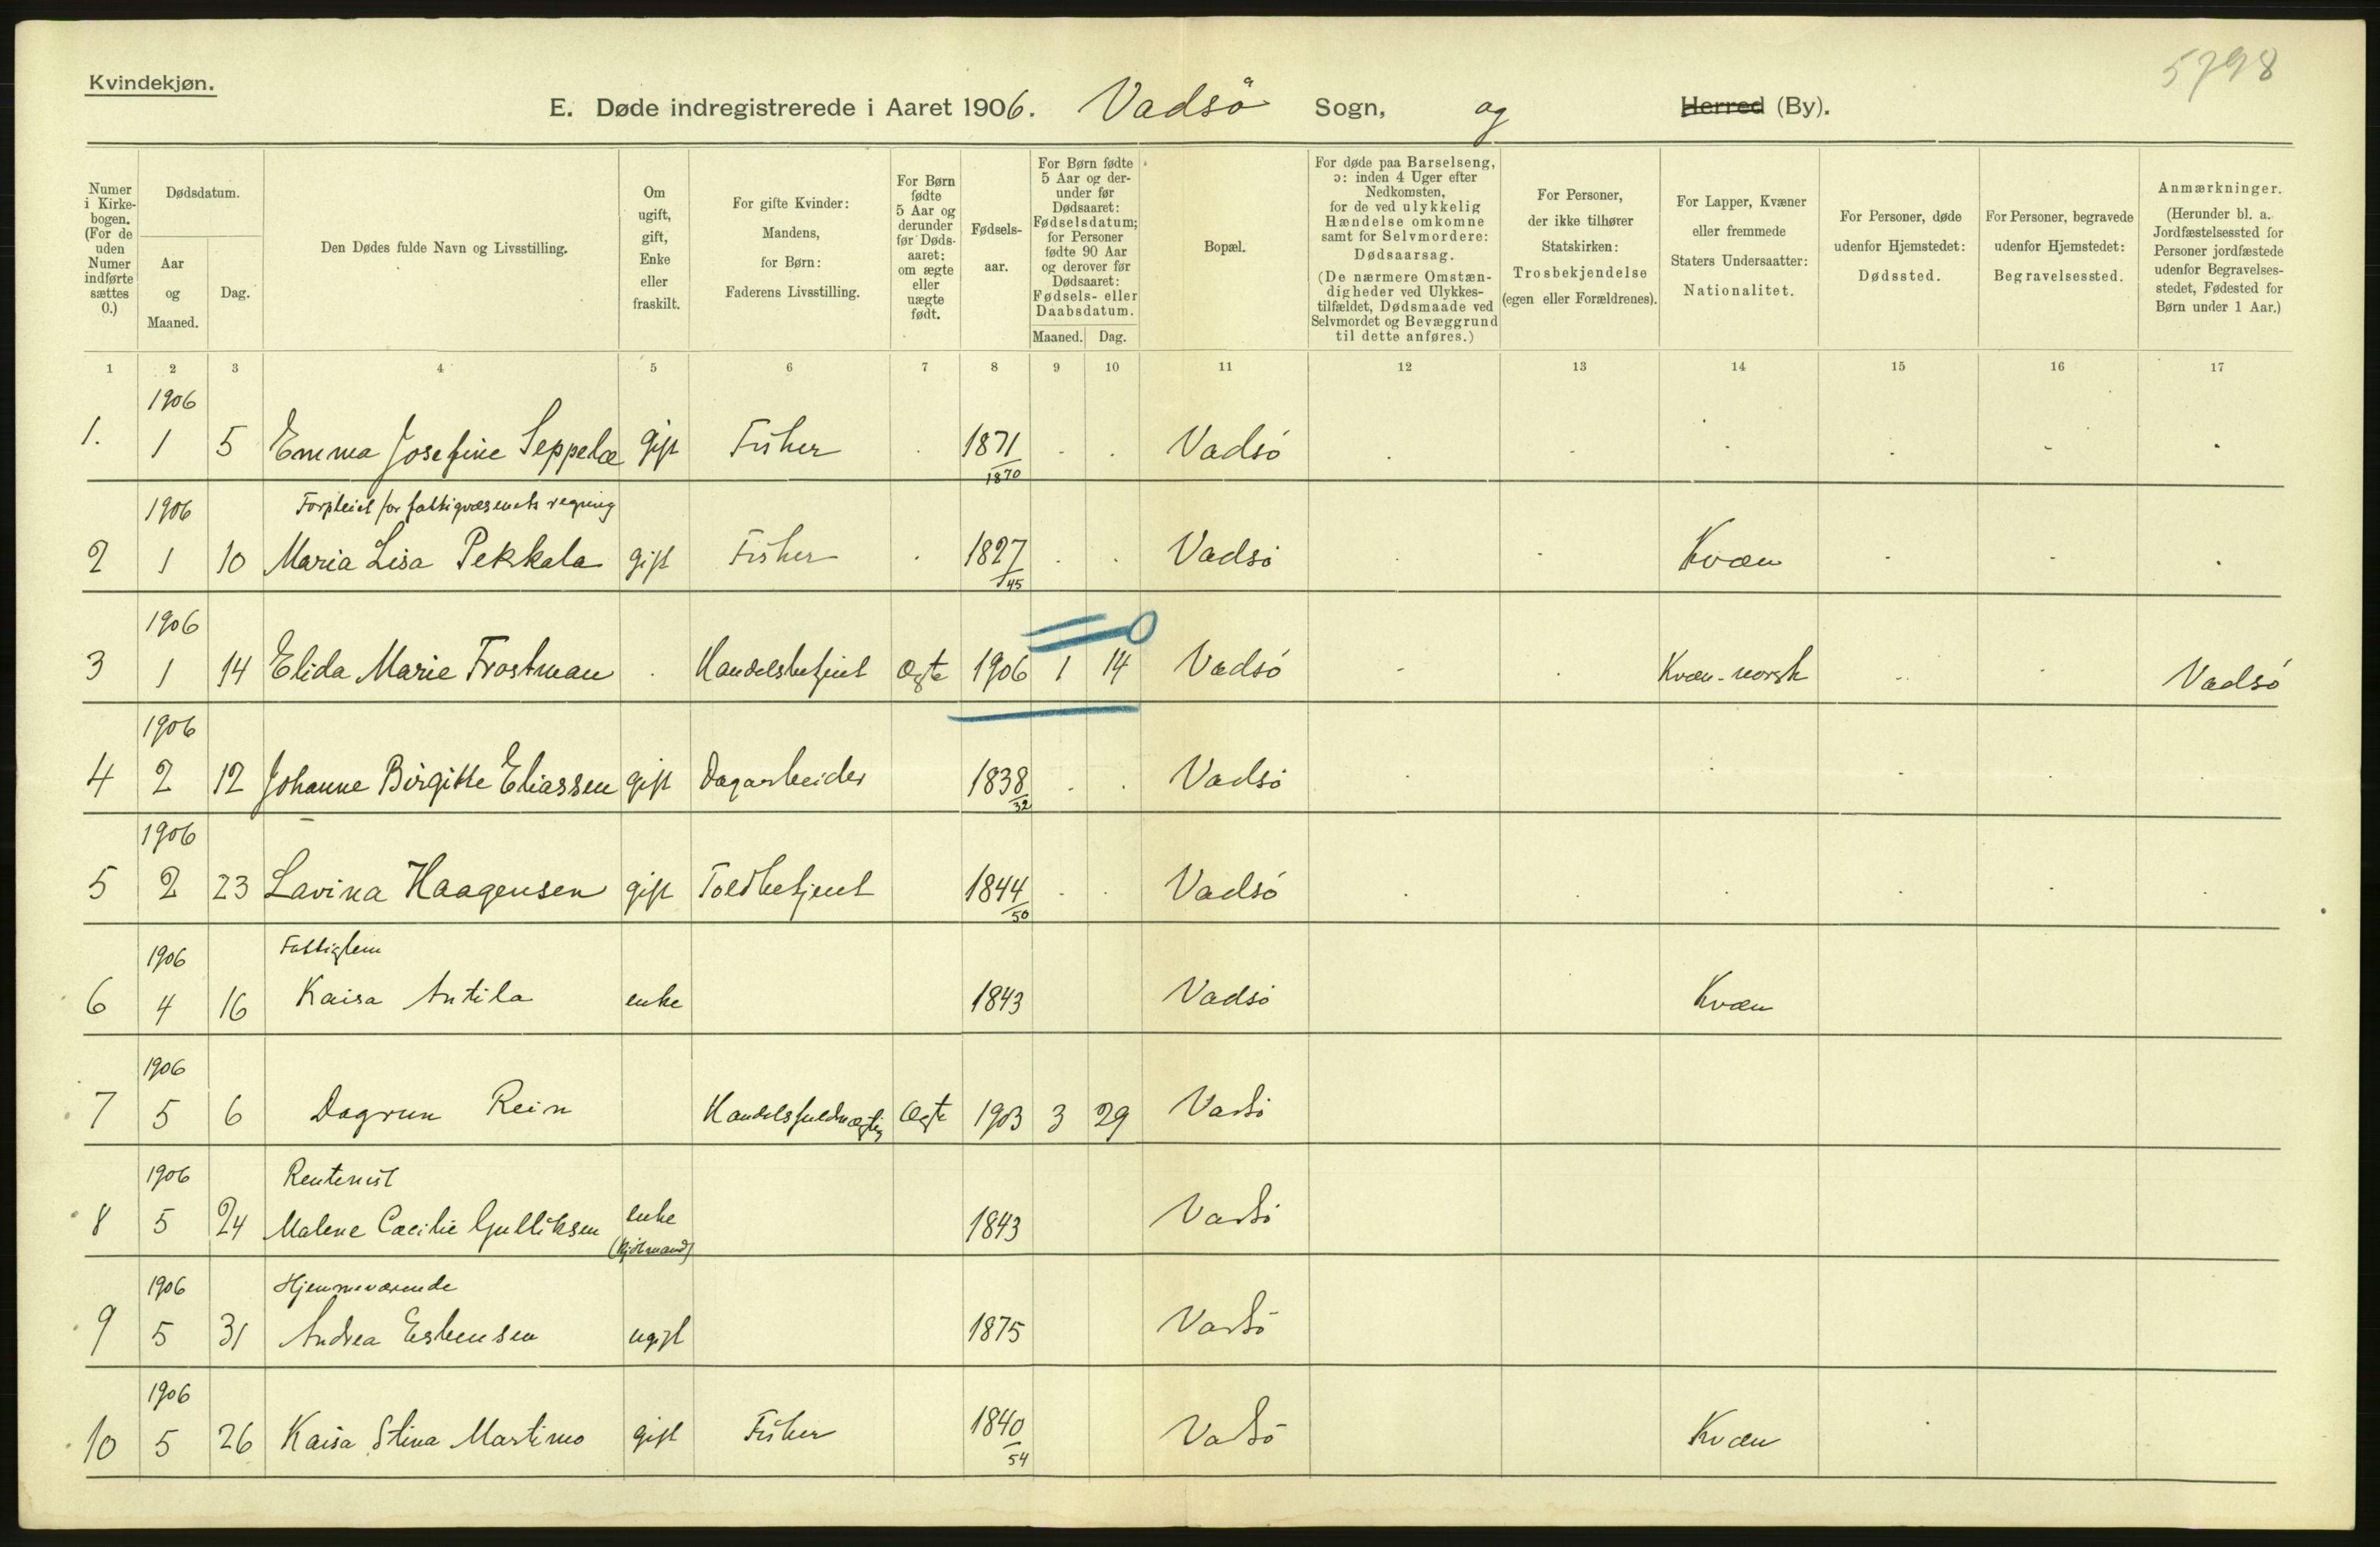 5798
Kvindekjøn.
E. Døde indregistrerede i Aaret 1906. Vadsö Sogn, og Herred (By).
Numer i Kirkebogen. (For de uden Numer indførte sættes 0.)
Dødsdatum.
Aar og Maaned.
Dag.
Den Dødes fulde Navn og Livsstilling.
Om ugift, gift, Enke eller fraskilt.
For gifte Kvinder: Mandens, for Børn: Faderens Livsstilling.
For Børn fødte 5 Aar og derunder før Dødsaaret: om ægte eller uægte født.
Fødselsaar.
For Børn fødte 5 Aar og derunder før Dødsaaret: Fødselsdatum; for Personer fødte 90 Aar og derover før Dødsaaret: Fødsels- eller Daabsdatum.
Maaned. Dag.
Bopæl.
For døde paa Barselseng, ɔ: inden 4 Uger efter Nedkomsten, for de ved ulykkelig Hændelse omkomne samt for Selvmordere: Dødsaarsag. (De nærmere Omstændigheder ved Ulykkestilfældet, Dødsmaade ved Selvmordet og Bevæggrund til dette anføres.)
For Personer, der ikke tilhører Statskirken: Trosbekjendelse (egen eller Forældrenes).
For Lapper, Kvæner eller fremmede Staters Undersaatter: Nationalitet.
For Personer, døde udenfor Hjemstedet: Dødssted.
For Personer, begravede udenfor Hjemstedet: Begravelsessted.
Anmærkninger. (Herunder bl. a. Jordfæstelsessted for Personer jordfæstede udenfor Begravelsesstedet, Fødested for Børn under 1 Aar.)
1 2 3 4 5 6 7 8 9 10 11 12 13 14 15 16 17
1906
1. 1 5 Emma Josefine Seppelæ gift Fisker 1871 Vadsö
1870
1906 Forpleiet for fattigvæsenets regning
2 1 10 Maria Lisa Pekkala gift Fisker 1827 Vadsö Kvæn
45
1906
3 1 14 Elida Marie Frostman Handelsbetjent Ægte 1906 1 14 Vadsö Kvæn-norsk Vadsö
1906
4 2 12 Johanne Birgitte Eliassen gift Dagarbeider 1838 Vadsö
32
1906
5 2 23 Lavina Haagensen gift Toldbetjent 1844 Vadsö
50
1906 Fattiglem
6 4 16 Kaisa Antila enke 1843 Vadsö Kvæn
1906
7 5 6 Dagrun Rein Handelsfuldmægtig Ægte 1903 3 29 Vadsö
1906 Rentenist
8 5 24 Malene Cæcilie Gulliksen enke 1843 Vadsö
1906 Hjemmeværende
9 5 31 Andrea Esbensen ugift 1875 Vadsö
1906
10 5 26 Kaisa Stina Martimo gift Fisker 1840 Vadsö Kvæn
54